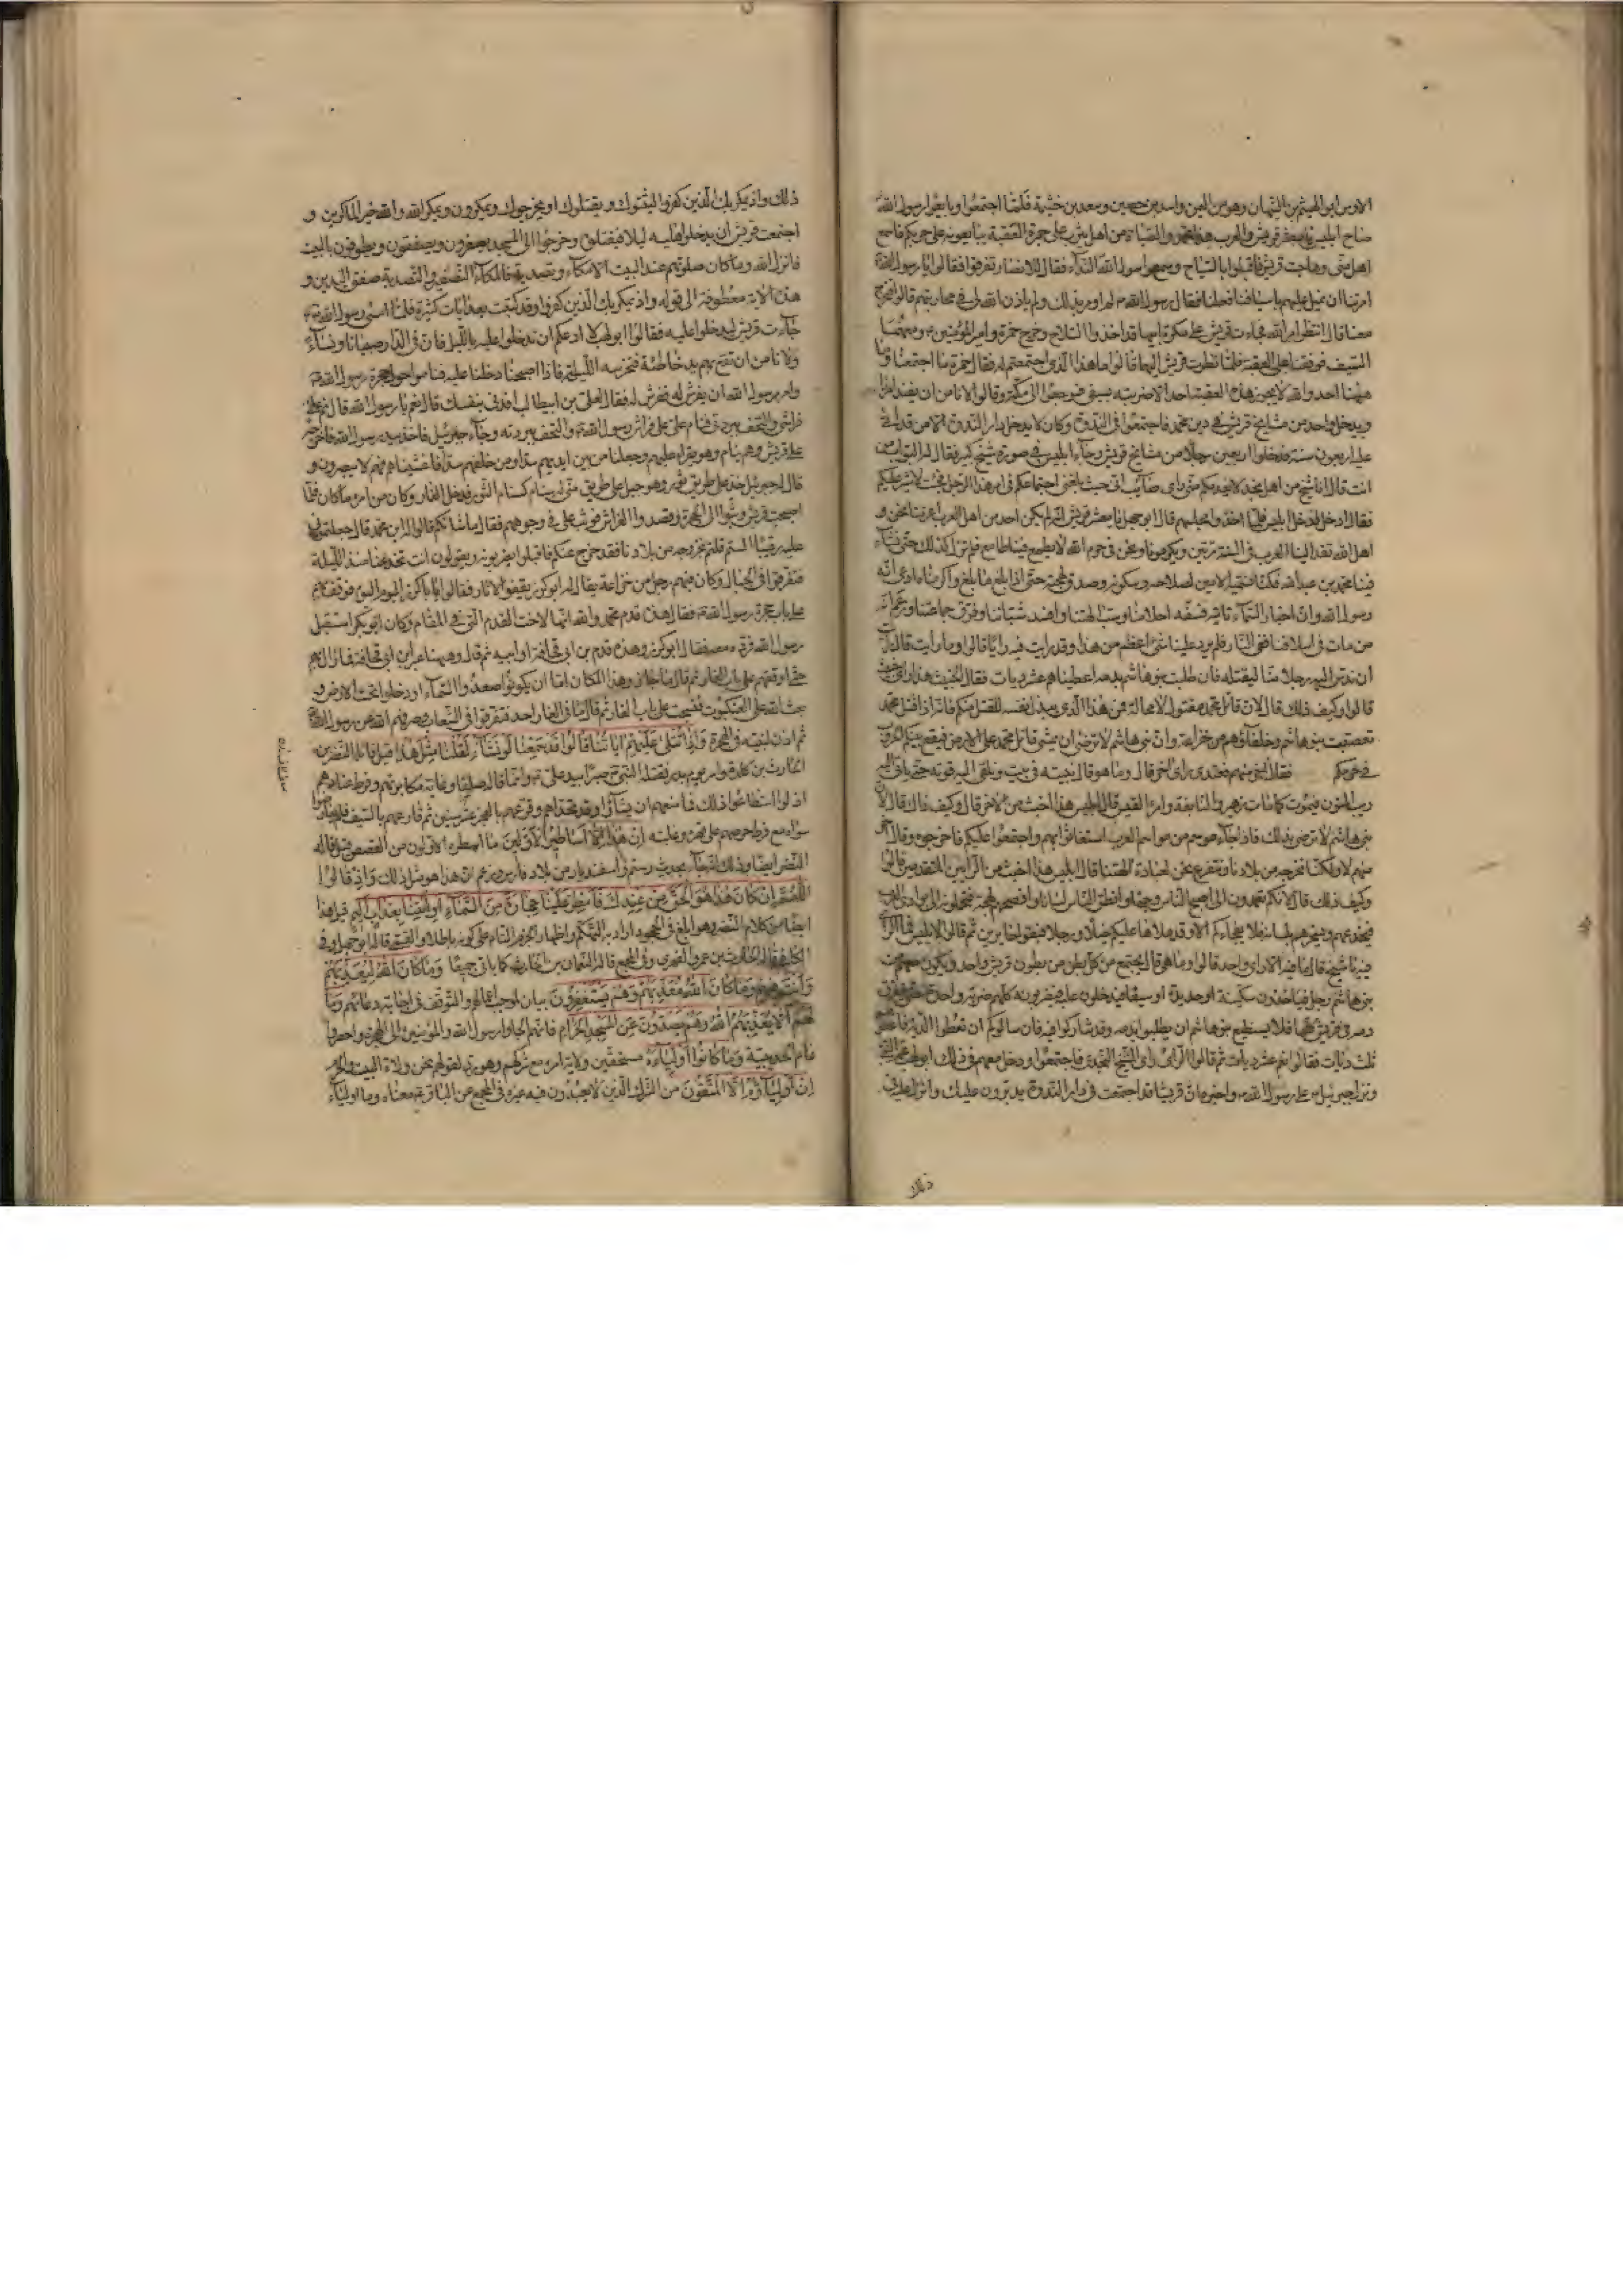 الاوس ابو الهيثم بن التيهان وهو من اليمن واسيد بن حصين وسعد بن خثيمة فلما اجتمعوا وبايعوا رسول الله
صاح ابليس يا معشر قريش والعرب هذا محمد والصباة من اهل يثرب على جمرة العقبة يبايعونه على حربكم فاسمع
اهل منى وهاجت قريش فاقبلوا بالسلاح وسمع رسول الله النداء فقال للانصار تفرقوا فقالوا يا رسول الله
امرتنا ان نميل عليهم باسيافنا فعلنا فقال رسول الله لم اومر بذلك ولم ياذن الله لي في محاربتهم قالوا فتخرج
معنا قال انتظر امر الله فجاءت قريش على بكرة ابيها قد اخذوا السلاح وخرج حمزة وامير المؤمنين ومعهما
السيف فوقفا على العقبة فلما نظرت قريش اليهما قالوا ما هذا الذي اجتمعتم له فقال حمزة ما اجتمعنا وما
ههنا احد والله لا يجوز هذه العقبة احد الا ضربته بسيفي فرجعوا الى مكة وقالوا لا نامن ان يفسد امرنا
ويدخل واحد من مشايخ قريش في دين محمد فاجتمعوا في الندوة وكان لا يدخل دار الندوة الا من قد اتى
عليه اربعون سنة فدخلوا اربعين رجلا من مشايخ قريش وجاء ابليس في صورة شيخ كبير فقال له البواب من
انت قال انا شيخ من اهل نجد لا يعدمكم مني راي صائب اني حيث بلغني اجتماعكم في امر هذا الرجل فجئت لاشير عليكم
فقال ادخل فدخل ابليس فلما اخذوا مجلسهم قال ابو جهل يا معشر قريش انه لم يكن احد من العرب اعز منا نحن
اهل الله تفد الينا العرب في السنة مرتين ويكرموننا ونحن في حرم الله لا يطمع فينا طامع فلم نزل كذلك حتى نشاء
فينا محمد بن عبد الله فكنا نسميه الامين لصلاحه وسكونه وصدق لهجته حتى اذا بلغ ما بلغ واكرمناه ادعى انه
رسول الله وان اخبار السماء تاتيه فسفه احلامنا وسب الهتنا وافسد شباننا وفرق جماعتنا وزعم انه
من مات من اسلافنا ففي النار فلم يرد علينا شئ اعظم من هذا وقد رايت فيه رايا قالوا وما رايت قال رايت
ان ندس اليه رجلا منا ليقتله فان طلبت بنو هاشم بدمه اعطيناهم عشر ديات فقال الخبيث هذا راي خبيث
قالوا وكيف ذلك قال لان قاتل محمد مقتول لا محالة فمن هذا الذي يبذل نفسه للقتل منكم فانه اذا قتل محمد
تعصبت بنو هاشم وحلفاؤهم من خزاعة وان بني هاشم لا ترضى ان يمشي قاتل محمد على الارض فيقع بينكم الحروب
في حرمكم فقال اخر منهم فعندي راي اخر قال وما هو قال نثبته في بيت ونلقي اليه قوته حتى ياتي اليه
ريب المنون فيموت كما مات زهير والنابغة وامرء القيس قال ابليس هذا اخبث من الاخر قال وكيف ذلك قال لان
بني هاشم لا ترضى بذلك فاذا جاء موسم من مواسم العرب استغاثوا بهم واجتمعوا عليكم فاخرجوه وقال اخر
منهم لا ولكنا نخرجه من بلادنا ونتفرغ نحن لعبادة الهتنا قال ابليس هذا اخبث من الرايين المتقدمين قالوا
وكيف ذلك قال لانكم تعمدون الى اصبح الناس وجها وانطق الناس لسانا وافصحهم لهجة فتحملونه الى بوادي العرب
فيخدعهم ويسحرهم بلسانه فلا يفجاءكم الا وقد ملاها عليكم خيلا ورجلا فبقوا حايرين ثم قالوا لابليس فما الراي
فيه يا شيخ قال ما فيه الا راي واحد قالوا وما هو قال يجتمع من كل بطن من بطون قريش واحد ويكون معهم من
بني هاشم رجل فياخذون سكينة او حديدة او سيفا فيدخلون عليه فيضربونه كلهم ضربة واحدة حتى يتفرق
دمه في قريش كلها فلا يستطيع بنو هاشم ان يطلبوا بدمه وقد شاركوا فيه فان سالوكم ان تعطوا الدية فاعطوهم
ثلث ديات فقالوا نعم عشر ديات ثم قالوا الراي راي الشيخ النجدي فاجتمعوا ودخل معهم في ذلك ابو لهب عم النبي
ونزل جبرئيل على رسول الله واخبره ان قريشا قد اجتمعت في دار الندوة يدبرون عليك وانزل عليه في
ذلك
ذلك واذ يمكر بك الذين كفروا ليثبتوك او يقتلوك او يخرجوك ويمكرون ويمكر الله والله خير الماكرين و
اجتمعت قريش ان يدخلوا عليه ليلا فيقتلوه وخرجوا الى المسجد يصفرون ويصفقون ويطوفون بالبيت
فانزل الله وما كان صلوتهم عند البيت الا مكاء وتصدية فالمكاء التصفير والتصدية صفق اليدين و
هذه الاية معطوفة الى قوله واذ يمكر بك الذين كفروا وقد كتبت بعد ايات كثيرة فلما امسى رسول الله
جاءت قريش ليدخلوا عليه فقال ابو لهب لا ادعكم ان تدخلوا عليه بالليل فان في الدار صبيانا ونساء
ولا نامن ان تقع بهم يد خاطئة فنحرسه الليلة فاذا اصبحنا دخلنا عليه فناموا حول حجرة رسول الله
وامر رسول الله ان يفرش له ففرش له فقال لعلي بن ابيطالب افدني بنفسك قال نعم يا رسول الله قال نم على
فراشي والتحف ببردتي فنام علي على فراش رسول الله والتحف ببردته وجاء جبرئيل فاخذ بيد رسول الله فاخرجه
على قريش وهم نيام وهو يقرا عليهم وجعلنا من بين ايديهم سدا ومن خلفهم سدا فاغشيناهم فهم لا يبصرون و
قال له جبرئيل خذ على طريق ثور وهو جبل على طريق منى له سنام كسنام الثور فدخل الغار وكان من امره ما كان فلما
اصبحت قريش وثبوا الى الحجرة وقصدوا الفراش فوثب علي في وجوههم فقال ما شانكم قالوا له اين محمد قال اجعلتموني
عليه رقيبا الستم قلتم نخرجه من بلادنا فقد خرج عنكم فاقبلوا يضربونه ويقولون انت تخدعنا منذ الليلة
فتفرقوا في الجبال وكان فيهم رجل من خزاعة يقال له ابو كرز يقفو الاثار فقالوا يا ابا كرز اليوم اليوم فوقف بهم
على باب حجرة رسول الله فقال هذه قدم محمد والله انها لاخت القدم التي في المقام وكان ابو بكر استقبل
رسول الله فرده معه فقال ابو كرز وهذه قدم بن ابي قحافة او ابيه ثم قال وههنا عبر ابن ابي قحافة فما زال بهم
حتى اوقفهم على باب الغار ثم قال ما جازوا هذا المكان اما ان يكونوا صعدوا السماء او دخلوا تحت الارض و
بعث الله على العنكبوت فنسجت على باب الغار ثم قال ما في الغار احد فتفرقوا في الشعاب وصرفهم الله عن رسول الله
ثم اذن لنبيه في الهجرة وَاِذَا تُتْلَى عَلَيْهِمْ ايَاتُنَا قَالُوا قَدْ سَمِعْنَا لَوْ نَشَآءُ لَقُلْنَا مِثْلَ هٰذَا قيل قائله النضر بن
الحارث بن كلدة واسر يوم بدر فقتله النبي صبرا بيد علي وانما قاله صلفا وغاية مكابرتهم وفرط عنادهم
اذ لو استطاعوا ذلك فما منعهم ان يشاؤا وقد تحداهم وقرعهم بالعجز عشر سنين ثم قارعهم بالسيف فلم يعارضوا
سواه مع فرط حرصهم على قهره وغلبته اِنْ هٰذَا اِلَّا اَسَاطِيْرُ الْاَوَّلِيْنَ ما اسطره الاولون من القصص قيل قاله
النضر ايضا وذلك انه جاء بحديث رستم واسفنديار من بلاد فارس وزعم ان هذا هو مثل ذلك وَاِذْ قَالُوا
اللّٰهُمَّ اِنْ كَانَ هٰذَا هُوَ الْحَقَّ مِنْ عِنْدِكَ فَاَمْطِرْ عَلَيْنَا حِجَارَةً مِنَ السَّمَآءِ اَوِ ائْتِنَا بِعَذَابٍ اَلِيْمٍ قيل هذا
ايضا من كلام النضر وهو ابلغ في الجحود اراد به التهكم واظهار الجزم التام على كونه باطلا والقمي قاله ابو جهل وفي
الكافي قاله الحارث بن عمرو الفهري وفي المجمع قاله النعمان بن الحارث كما ياتي جميعا وَمَا كَانَ اللّٰهُ لِيُعَذِّبَهُمْ
وَاَنْتَ فِيْهِمْ وَمَا كَانَ اللّٰهُ مُعَذِّبَهُمْ وَهُمْ يَسْتَغْفِرُوْنَ بيان لموجب امهالهم والتوقف في اجابة دعائهم وَمَا
لَهُمْ اَلَّا يُعَذِّبَهُمُ اللّٰهُ وَهُمْ يَصُدُّوْنَ عَنِ الْمَسْجِدِ الْحَرَامِ فانهم الجاوا رسول الله والمؤمنين الى الهجرة واحصروا
عام الحديبية وَمَا كَانُوا اَوْلِيَاءَهُ مستحقين ولاية امره مع شركهم وهو رد لقولهم نحن ولاة البيت والحرم
اِنْ اَوْلِيَآؤُهُ اِلَّا الْمُتَّقُوْنَ من الشرك الذين لا يعبدون فيه غيره في المجمع عن الباقر معناه وما اولياء